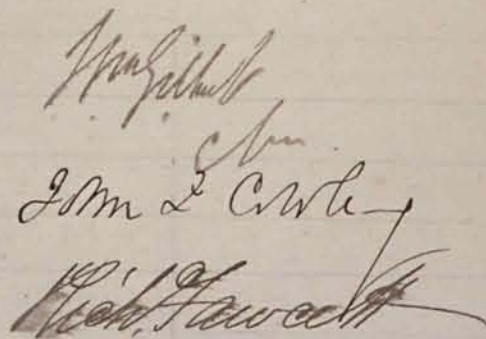 Wm Gilbert
Chm.
John L Cowley
Rich. Fawcett